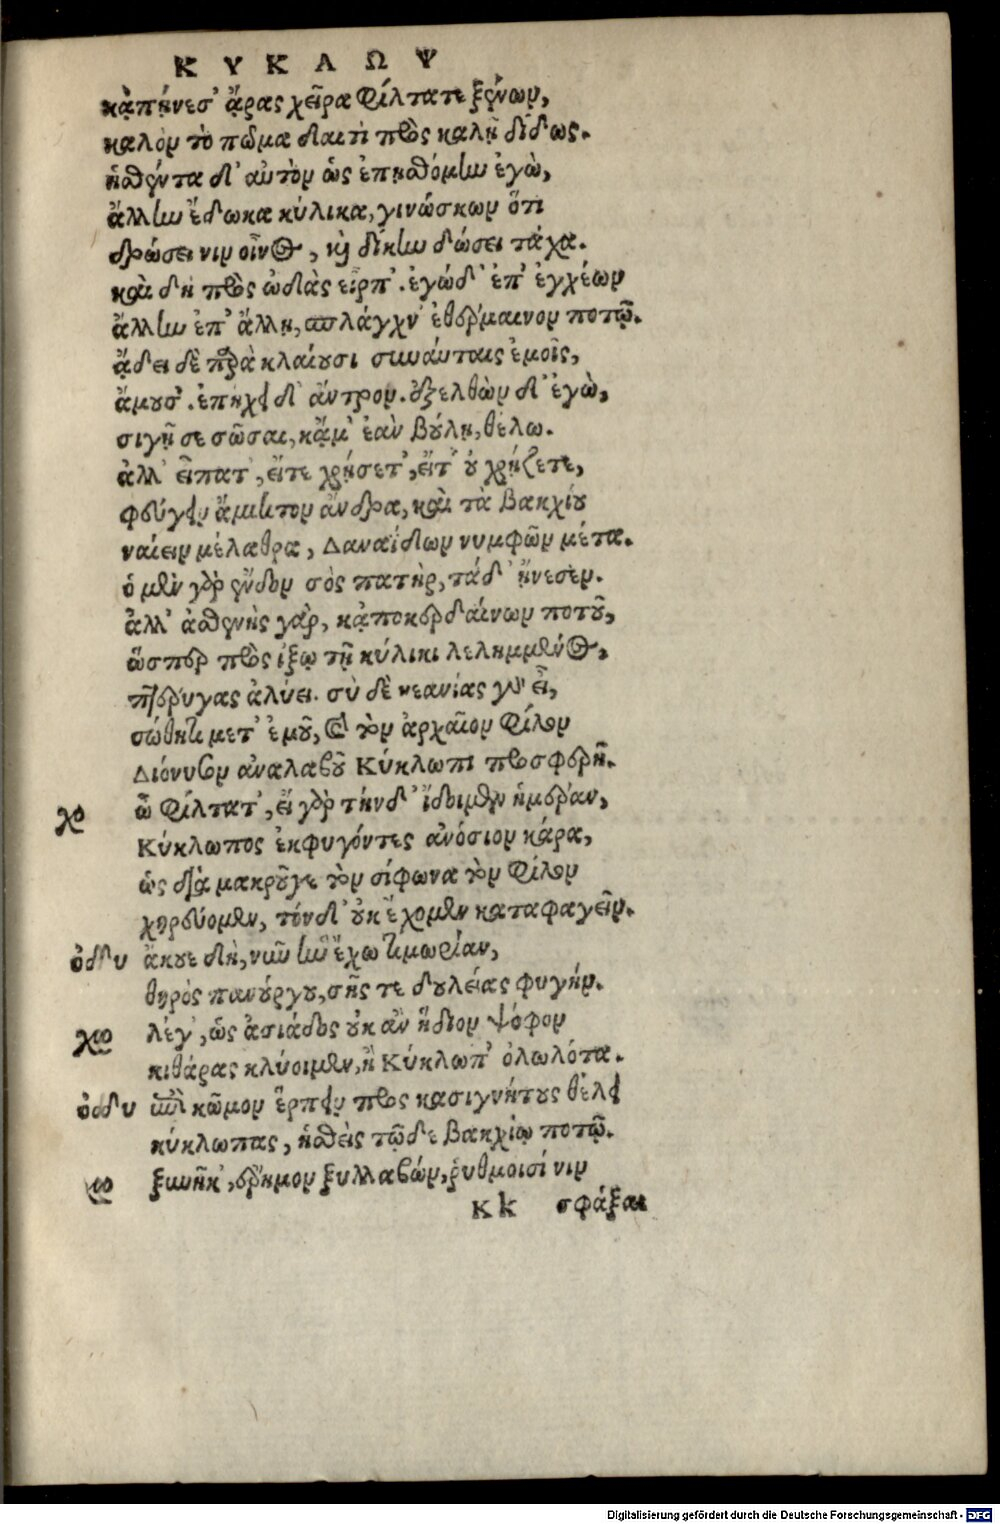 ΚΥΚΛΩΨ
κᾀπήνεσ' ἄρας χεῖρα Φίλτατε ξένων,
καλὸν τὸ πῶμα δαιτὶ πρὸς καλῇ δίδως.
ἡσθέντα δ' αὐτὸν ὡς ἐπῃσθόμην ἐγὼ,
ἄλλην ἔδωκα κύλικα, γινώσκων ὅτι
τρώσει νιν οἶνος, καὶ δίκην δώσει τάχα.
καὶ δὴ πρὸς ᾠδὰς εἷρπ'. ἐγώ δ' ἐπ' ἐγχέων
ἄλλην ἐπ' ἄλλῃ, σπλάγχν' ἐθέρμαινον ποτῷ.
ᾄδει δὲ παρὰ κλαίουσι συναύταις ἐμοῖς,
ἄμουσ'. ἐπηχεῖ δ' ἄντρον. ἐξελθὼν δ' ἐγὼ,
σιγῇ σε σῶσαι, κἄμ' ἐὰν βούλῃ, θέλω.
ἀλλ' εἴπατ', εἴτε χρῄσετ', εἴτ' οὐ χρῄζετε,
φεύγειν ἄμικτον ἄνδρα, καὶ τὰ Βακχίου
ναίειν μέλαθρα, Δαναΐδων νυμφῶν μέτα.
ὁ μὲν γὰρ ἔνδον σὸς πατὴρ, τάδ' ᾔνεσεν.
ἀλλ' ἀσθενὴς γὰρ, κᾀποκερδαίνων ποτοῦ,
ὥσπερ πρὸς ἰξῷ τῇ κύλικι λελημμένος,
πτέρυγας ἀλύει. σὺ δὲ νεανίας γὰρ εἶ,
σώθητι μετ' ἐμοῦ, καὶ τὸν ἀρχαῖον Φίλον
Διόνυσον ἀναλαβοῦ Κύκλωπι προσφερῆ.
χο ὦ Φίλτατ', εἰ γὰρ τήνδ' ἴδοιμεν ἡμέραν,
Κύκλωπος ἐκφυγόντες ἀνόσιον κάρα,
ὡς διὰ μακροῦγε τὸν σίφωνα τὸν Φίλον
χηρεύομεν, τόνδ' οὐκ ἔχομεν καταφαγεῖν.
ὀδυ ἄκουε δὴ, νῦν ἣν ἔχω τιμωρίαν,
θηρὸς πανούργου, σῆς τε δουλείας φυγήν.
χο λέγ', ὡς ἀσιάδος οὐκ ἂν ἥδιον ψόφον
κιθάρας κλύοιμεν, ἢ Κύκλωπ' ὀλωλότα.
ὀδυ ἐπὶ κῶμον ἕρπειν πρὸς κασιγνήτους θέλει
κύκλωπας, ἡσθεὶς τῷδε Βακχίῳ ποτῷ.
χο ξυνῆκ', ἔρημον ξυλλαβών, ῥυθμοισί νιν
Kk σφάξαι
Digitalisierung gefördert durch die Deutsche Forschungsgemeinschaft - DFG